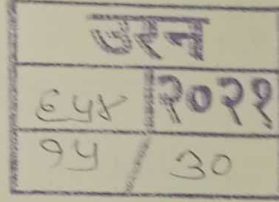 उरन
६५४ २०२१
१५ / ३०